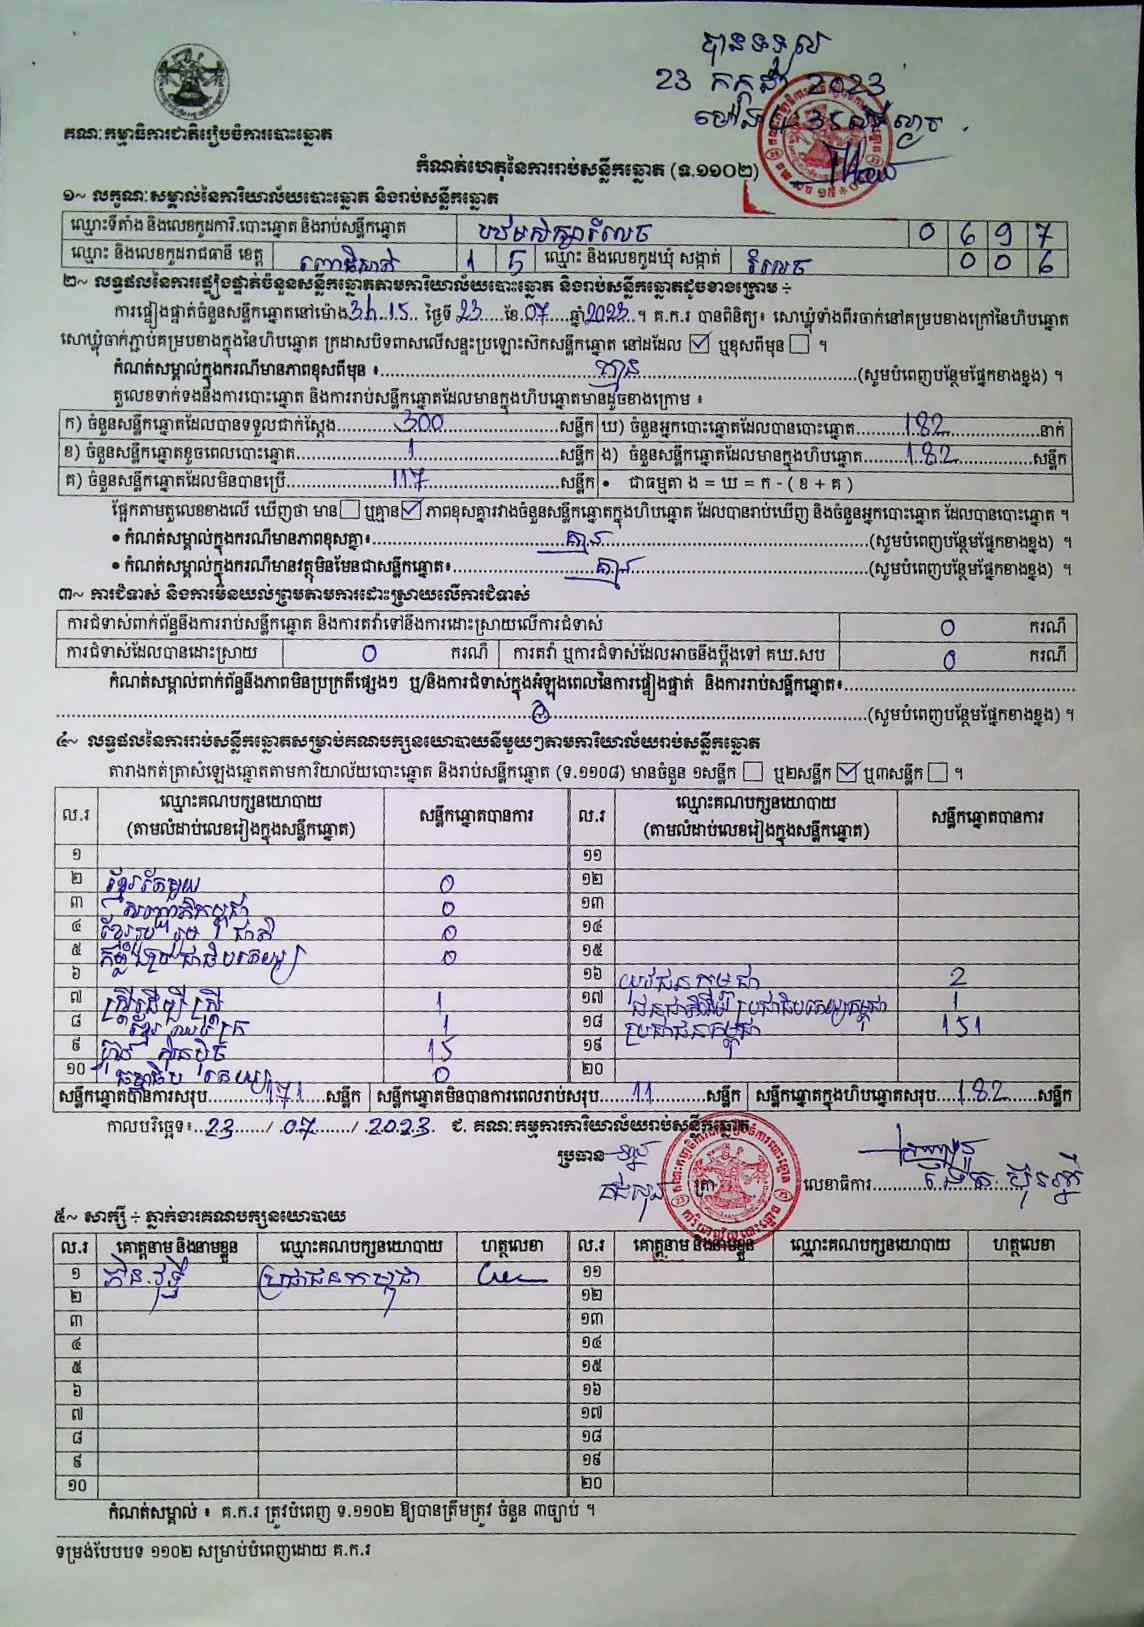 បានទទួល
23 កក្កដា 2023
គណៈកម្មាធិការជាតិរៀបចំការបោះឆ្នោត
កំណត់ហេតុនៃការរាប់សន្លឹកឆ្នោត (ទ.១១០២)
១~ លក្ខណៈសម្គាល់នៃការិយាល័យបោះឆ្នោត និងរាប់សន្លឹកឆ្នោត
ឈ្មោះទីតាំង និងលេខកូដការិ.បោះឆ្នោត និងរាប់សន្លឹកឆ្នោត បឋមសិក្សារំលេច 0 6 9 7
ឈ្មោះ និងលេខកូដរាជធានី ខេត្ត ពោធិ៍សាត់ 1 5 ឈ្មោះ និងលេខកូដឃុំ សង្កាត់ រំលេច 0 0 6
២~ លទ្ធផលនៃការផ្ទៀងផ្ទាត់ចំនួនសន្លឹកឆ្នោតតាមការិយាល័យបោះឆ្នោត និងរាប់សន្លឹកឆ្នោតដូចខាងក្រោម ÷
ការផ្ទៀងផ្ទាត់ចំនួនសន្លឹកឆ្នោតនៅម៉ោង 3h 15 ថ្ងៃទី 23 ខែ 07 ឆ្នាំ 2023 ។ គ.ក.រ បានពិនិត្យ៖ សោឃ្លុំទាំងពីរចាក់នៅគម្របខាងក្រៅនៃហិបឆ្នោត
សោឃ្លុំចាក់ភ្ជាប់គម្របខាងក្នុងនៃហិបឆ្នោត ក្រដាសបិទពាសលើសន្ទះប្រឡោះស៊កសន្លឹកឆ្នោត នៅដដែល ☑ ឬខុសពីមុន ☐ ។
កំណត់សម្គាល់ក្នុងករណីមានភាពខុសពីមុន ៖ គ្មាន (សូមបំពេញបន្ថែមផ្នែកខាងខ្នង) ។
តួលេខទាក់ទងនឹងការបោះឆ្នោត និងការរាប់សន្លឹកឆ្នោតដែលមានក្នុងហិបឆ្នោតមានដូចខាងក្រោម ៖
ក) ចំនួនសន្លឹកឆ្នោតដែលបានទទួលជាក់ស្តែង 300 សន្លឹក ឃ) ចំនួនអ្នកបោះឆ្នោតដែលបានបោះឆ្នោត 182 នាក់
ខ) ចំនួនសន្លឹកឆ្នោតខូចពេលបោះឆ្នោត 1 សន្លឹក ង) ចំនួនសន្លឹកឆ្នោតដែលមានក្នុងហិបឆ្នោត 182 សន្លឹក
គ) ចំនួនសន្លឹកឆ្នោតដែលមិនបានប្រើ 117 សន្លឹក • ជាធម្មតា ង = ឃ = ក - ( ខ + គ )
ផ្អែកតាមតួលេខខាងលើ ឃើញថា មាន ☐ ឬគ្មាន ☑ ភាពខុសគ្នារវាងចំនួនសន្លឹកឆ្នោតក្នុងហិបឆ្នោត ដែលបានរាប់ឃើញ និងចំនួនអ្នកបោះឆ្នោត ដែលបានបោះឆ្នោត ។
• កំណត់សម្គាល់ក្នុងករណីមានភាពខុសគ្នា៖ គ្មាន (សូមបំពេញបន្ថែមផ្នែកខាងខ្នង) ។
• កំណត់សម្គាល់ក្នុងករណីមានវត្ថុមិនមែនជាសន្លឹកឆ្នោត៖ គ្មាន (សូមបំពេញបន្ថែមផ្នែកខាងខ្នង) ។
៣~ ការជំទាស់ និងការមិនយល់ព្រមតាមការដោះស្រាយលើការជំទាស់
ការជំទាស់ពាក់ព័ន្ធនឹងការរាប់សន្លឹកឆ្នោត និងការតវ៉ាទៅនឹងការដោះស្រាយលើការជំទាស់ 0 ករណី
ការជំទាស់ដែលបានដោះស្រាយ 0 ករណី ការតវ៉ា ឬការជំទាស់ដែលអាចនឹងប្តឹងទៅ គឃ.សប 0 ករណី
កំណត់សម្គាល់ពាក់ព័ន្ធនឹងភាពមិនប្រក្រតីផ្សេងៗ ឬ/និងការជំទាស់ក្នុងអំឡុងពេលនៃការផ្ទៀងផ្ទាត់ និងការរាប់សន្លឹកឆ្នោត៖
0 (សូមបំពេញបន្ថែមផ្នែកខាងខ្នង) ។
៤~ លទ្ធផលនៃការរាប់សន្លឹកឆ្នោតសម្រាប់គណបក្សនយោបាយនីមួយៗតាមការិយាល័យរាប់សន្លឹកឆ្នោត
តារាងកត់ត្រាសំឡេងឆ្នោតតាមការិយាល័យបោះឆ្នោត និងរាប់សន្លឹកឆ្នោត (ទ.១១០៨) មានចំនួន ១សន្លឹក ☐ ឬ២សន្លឹក ☑ ឬ៣សន្លឹក ☐ ។
ល.រ ឈ្មោះគណបក្សនយោបាយ (តាមលំដាប់លេខរៀងក្នុងសន្លឹកឆ្នោត) សន្លឹកឆ្នោតបានការ ល.រ ឈ្មោះគណបក្សនយោបាយ (តាមលំដាប់លេខរៀងក្នុងសន្លឹកឆ្នោត) សន្លឹកឆ្នោតបានការ
១ ១១
២ ខ្មែរតែមួយ 0 ១២
៣ សញ្ជាតិកម្ពុជា 0 ១៣
៤ ខ្មែររួបរួមជាតិ 0 ១៤
៥ កម្លាំងប្រជាធិបតេយ្យ 0 ១៥
៦ ១៦ យុវជនកម្ពុជា 2
៧ ស្ត្រីដើម្បីស្ត្រី 1 ១៧ ជនជាតិដើមប្រជាធិបតេយ្យកម្ពុជា 1
៨ ខ្មែរឈប់ក្រ 1 ១៨ ប្រជាជនកម្ពុជា 151
៩ ហ៊្វុនស៊ិនប៉ិច 15 ១៩
១០ ធម្មាធិបតេយ្យ 0 ២០
សន្លឹកឆ្នោតបានការសរុប 171 សន្លឹក សន្លឹកឆ្នោតមិនបានការពេលរាប់សរុប 11 សន្លឹក សន្លឹកឆ្នោតក្នុងហិបឆ្នោតសរុប 182 សន្លឹក
កាលបរិច្ឆេទ៖ 23 / 07 / 2023 ជ. គណៈកម្មការការិយាល័យរាប់សន្លឹកឆ្នោត
ប្រធាន
ត្រា លេខាធិការ
៥~ សាក្សី ÷ ភ្នាក់ងារគណបក្សនយោបាយ
ល.រ គោត្តនាម និងនាមខ្លួន ឈ្មោះគណបក្សនយោបាយ ហត្ថលេខា ល.រ គោត្តនាម និងនាមខ្លួន ឈ្មោះគណបក្សនយោបាយ ហត្ថលេខា
១ ប្រជាជនកម្ពុជា ១១
២ ១២
៣ ១៣
៤ ១៤
៥ ១៥
៦ ១៦
៧ ១៧
៨ ១៨
៩ ១៩
១០ ២០
កំណត់សម្គាល់ ៖ គ.ក.រ ត្រូវបំពេញ ទ.១១០២ ឱ្យបានត្រឹមត្រូវ ចំនួន ៣ច្បាប់ ។
ទម្រង់បែបបទ ១១០២ សម្រាប់បំពេញដោយ គ.ក.រ